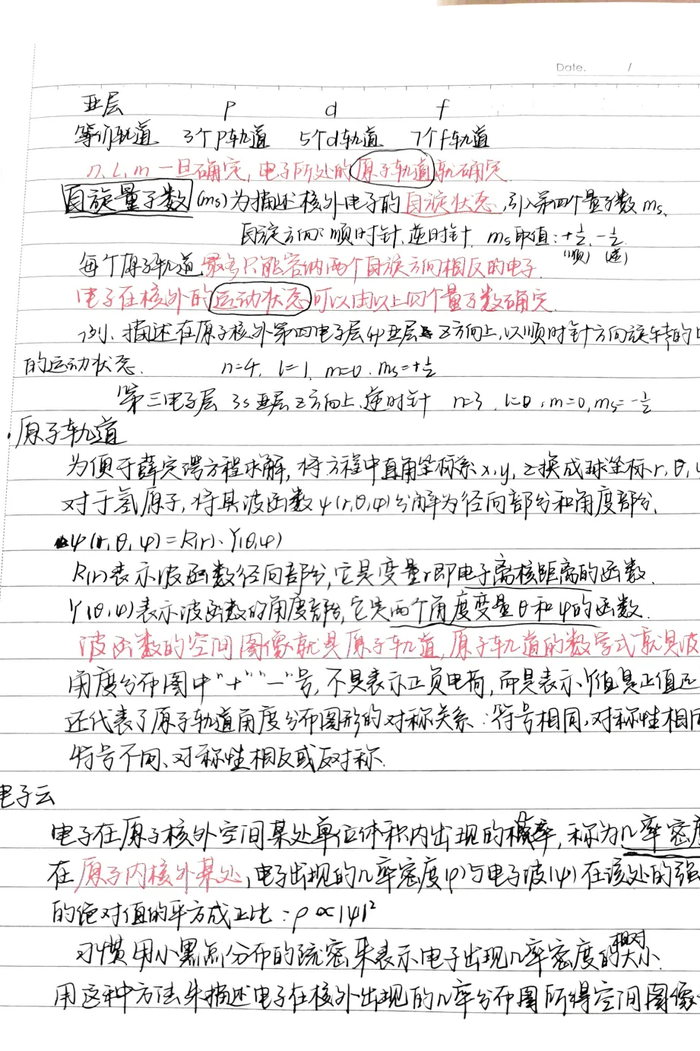 Date. /
亚层 p d f
等价轨道 3个p轨道 5个d轨道 7个f轨道
n, l, m 一旦确定, 电子所处的原子轨道就确定.
自旋量子数 (ms) 为描述核外电子的自旋状态, 引入第四个量子数 ms,
自旋方向: 顺时针, 逆时针 ms取值: +½, -½
(顺) (逆)
每个原子轨道最多只能容纳两个自旋方向相反的电子.
电子在核外的运动状态可以由以上四个量子数确定.
例. 描述在原子核外第四电子层4p亚层 z方向上, 以顺时针方向旋转的
的运动状态. n=4, l=1, m=0, ms=+½
第三电子层 3s亚层 z方向上, 逆时针 n=3, l=0, m=0, ms=-½
·原子轨道
为便于薛定谔方程求解, 将方程中直角坐标系x, y, z换成球坐标r, θ,
对于氢原子, 将其波函数ψ(r, θ, φ)分解为径向部分和角度部分.
ψ(r, θ, φ)=R(r)·Y(θ, φ)
R(r)表示波函数径向部分, 它是变量r即电子离核距离的函数.
Y(θ, φ)表示波函数的角度部分, 它是两个角度变量θ和φ的函数.
波函数的空间图像就是原子轨道, 原子轨道的数学式就是波
角度分布图中"+""-"号, 不是表示正负电荷, 而是表示Y值是正值还
还代表了原子轨道角度分布图形的对称关系: 符号相同, 对称性相同
符号不同、对称性相反或反对称.
电子云
电子在原子核外空间某处单位体积内出现的概率, 称为几率密度
在原子内核外某处, 电子出现的几率密度(ρ)与电子波(ψ)在该处的强
的绝对值的平方成正比: ρ∝|ψ|²
习惯用小黑点分布的疏密来表示电子出现几率密度的相对大小.
用这种方法来描述电子在核外出现的几率分布图所得空间图像